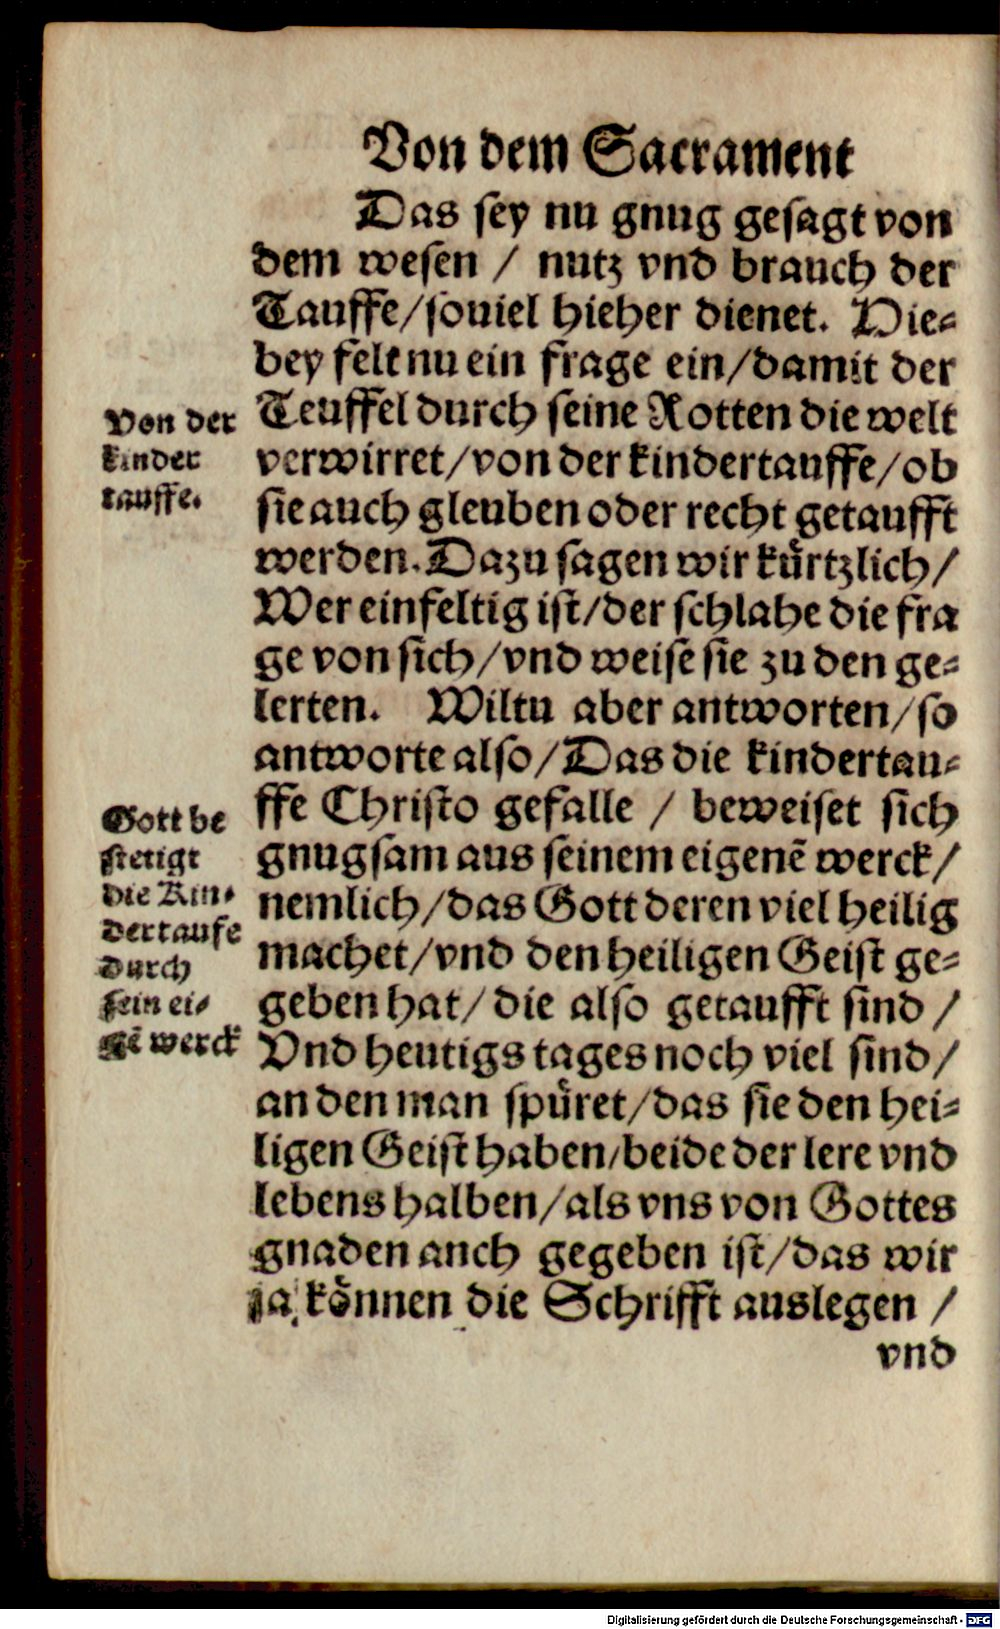 Von dem Sacrament
Das sey nu gnug gesagt von
dem wesen / nutz vnd brauch der
Tauffe/souiel hieher dienet. Hie=
bey felt nu ein frage ein/damit der
Teuffel durch seine Rotten die welt
verwirret/von der kindertauffe/ob
sie auch gleuben oder recht getaufft
werden. Dazu sagen wir kuͤrtzlich/
Wer einfeltig ist/der schlahe die fra
ge von sich/vnd weise sie zu den ge=
lerten. Wiltu aber antworten/so
antworte also/Das die kindertau=
ffe Christo gefalle / beweiset sich
gnugsam aus seinem eigenẽ werck/
nemlich/das Gott deren viel heilig
machet/vnd den heiligen Geist ge=
geben hat/die also getaufft sind /
Vnd heutigs tages noch viel sind/
an den man spuͤret/das sie den hei=
ligen Geist haben/beide der lere vnd
lebens halben/als vns von Gottes
gnaden anch gegeben ist/das wir
ja koͤnnen die Schrifft auslegen /
vnd
Von der
kinder
tauffe.
Gott be
stetigt
die Kin=
dertaufe
durch
sein ei=
gẽ werck
Digitalisierung gefördert durch die Deutsche Forschungsgemeinschaft - DFG